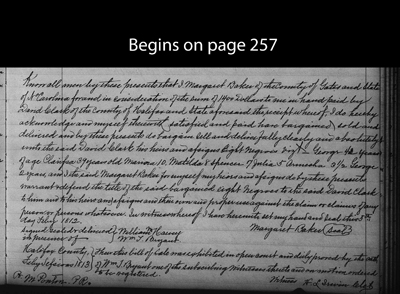 Begins on page 257
Know all men by these presents that I Margaret Baker of the County of Gates and State
of N. Carolina for and in consideration of the sum of 1900 dollars to me in hand paid by
David Clark of the County of Halifax and State aforesaid the receipt whereof I do hereby
acknowledge and myself therewith satisfied and paid have bargained sold and
delivered and by these presents do bargain sell and deliver fully clearly and absolutely
unto the said David Clark his heirs and assigns Eight Negroes viz George years
of age 39 years old Marina 10. Matilda 8 Spencer 7 Julia 5
2 years and I the said Margaret Baker for myself my heirs and assigns do by these presents
warrant & defend the title of the said bargained eight Negroes to the said David Clark
to him and to his heirs and assigns against the claim or claims of any
person or persons whatsoever. In witness whereof I have hereunto set my hand and seal this
day Feby 1813.
Margaret Baker (seal)
signed sealed & delivered
in presence of
William Harvey
Wm J. Bryant
Halifax County,
Feby 1813
Then this bill of sale was exhibited in open court and duly proved by the oath
of Wm J. Bryant one of the subscribing witnesses thereto and on motion ordered
to be registered.
Witness